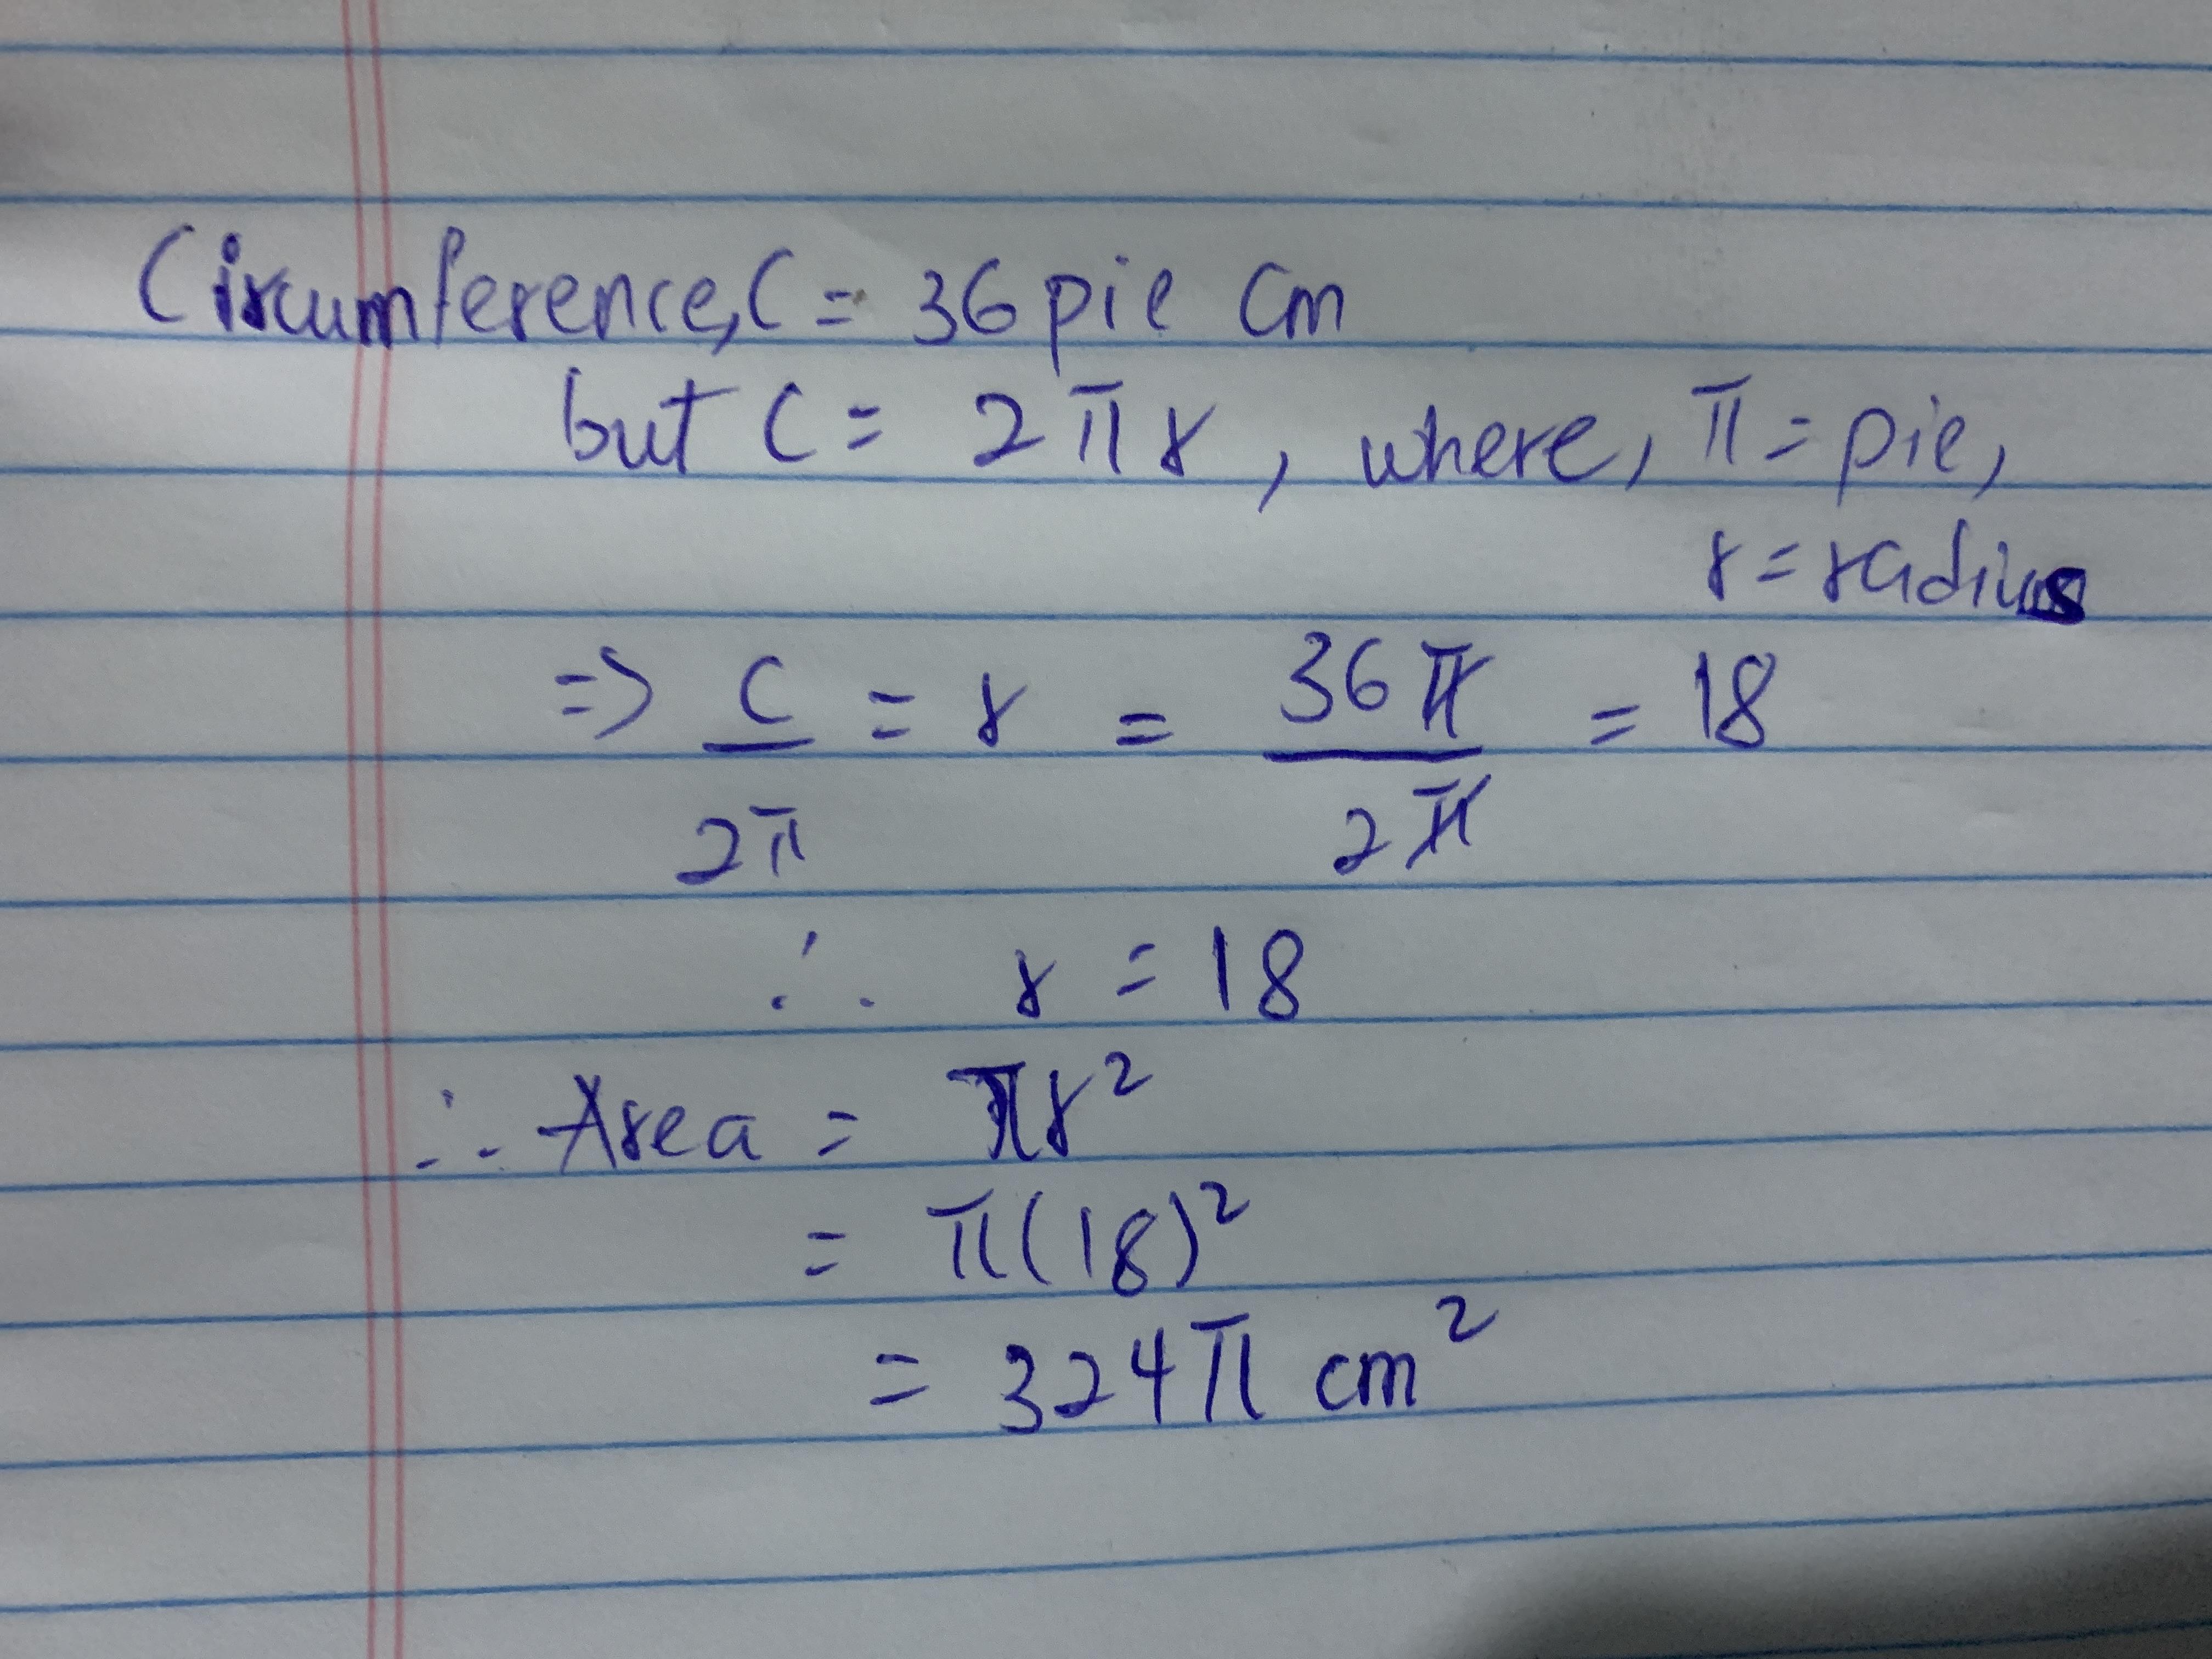 Circumference, C = 36 pie cm
but C = 2πr, where, π = pie,
r = radius
=> C/2π = r = 36π/2π = 18
∴ r = 18
∴ Area = πr²
= π(18)²
= 324π cm²